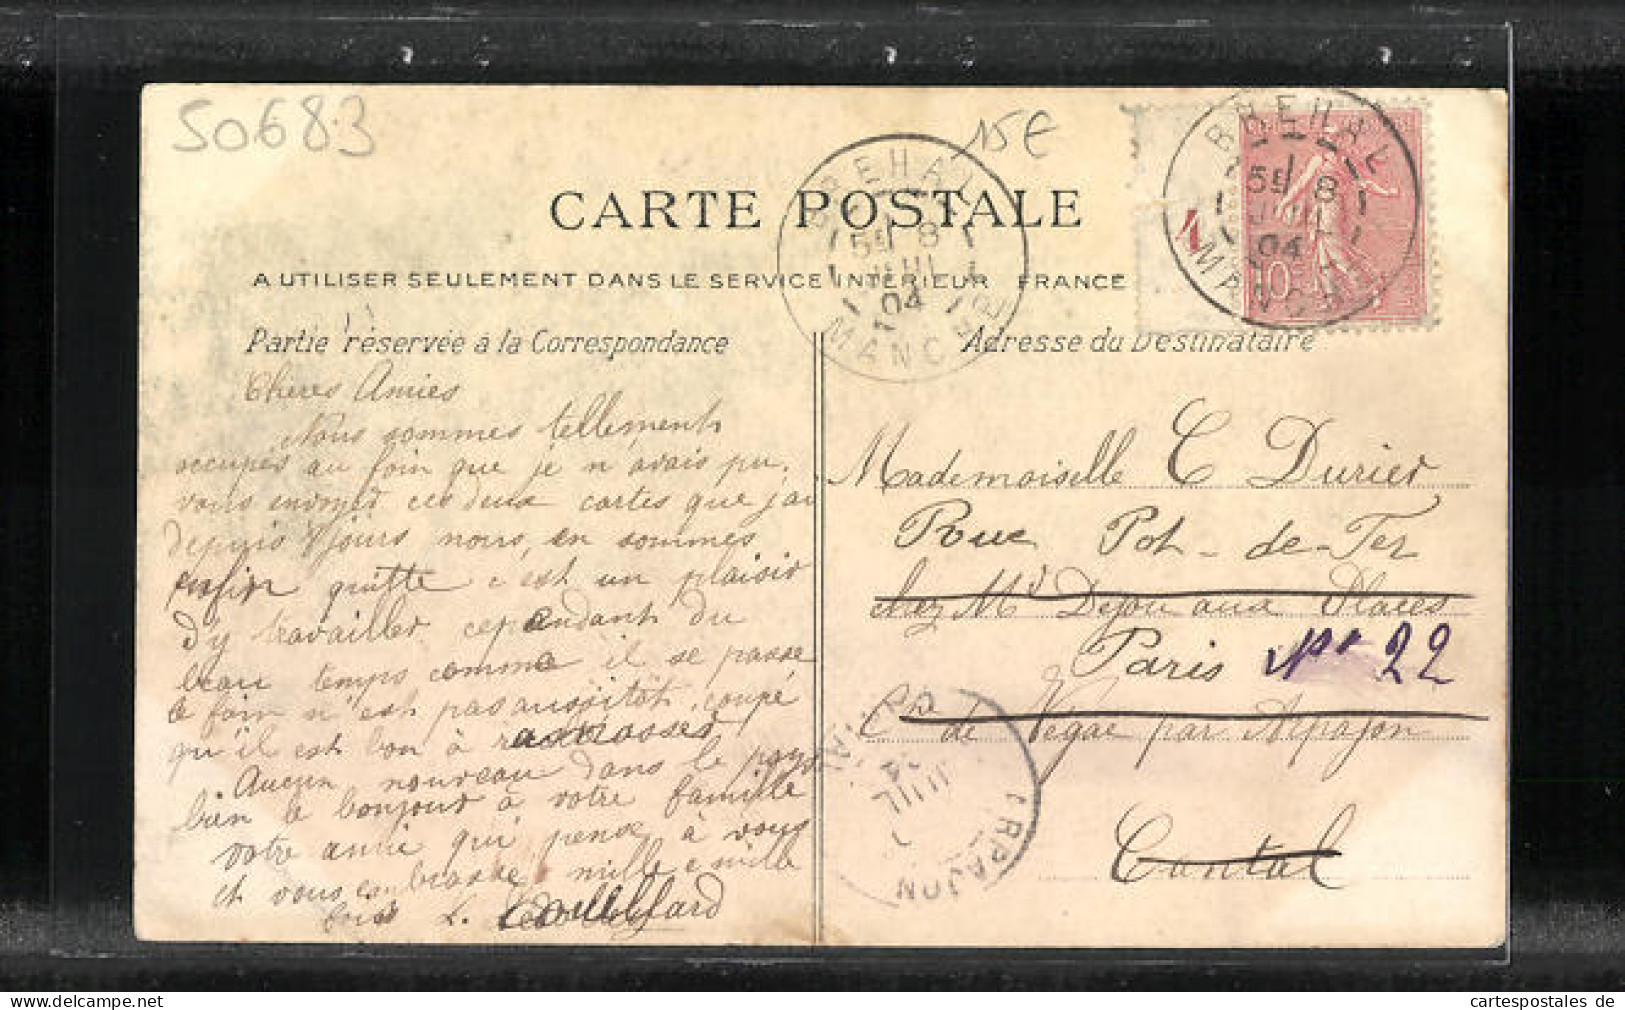 50683
15€
CARTE POSTALE
A UTILISER SEULEMENT DANS LE SERVICE INTÉRIEUR FRANCE
BREHAL
5E 8
JUIL
04
MANCHE
BREHAL
5E 8
JUIL
04
MANCHE
10
Partie réservée à la Correspondance
Adresse du Destinataire
Cheres Amies
Nous sommes tellement
occupés au foin que je n avais pu
vous envoyer ces deux cartes que j'ai
depuis 8 jours nous, en sommes
enfin quitte c'est un plaisir
d'y travailler cependant du
beau temps comme il se passe
le foin n'est pas aussitôt coupé
qu'il est bon à ramasser
Aucun nouveau dans le pays
bien le bonjour à votre famille
votre amie qui pense à vous
et vous embrasse mille e mille
fois L.
Mademoiselle C Durier
Rue Pot-de-Fer
chez Mr Dejou aux Places
Paris No 22
Cne de Végac par Arpajon
Cantal
ARPAJON
JUIL
cartespostales de